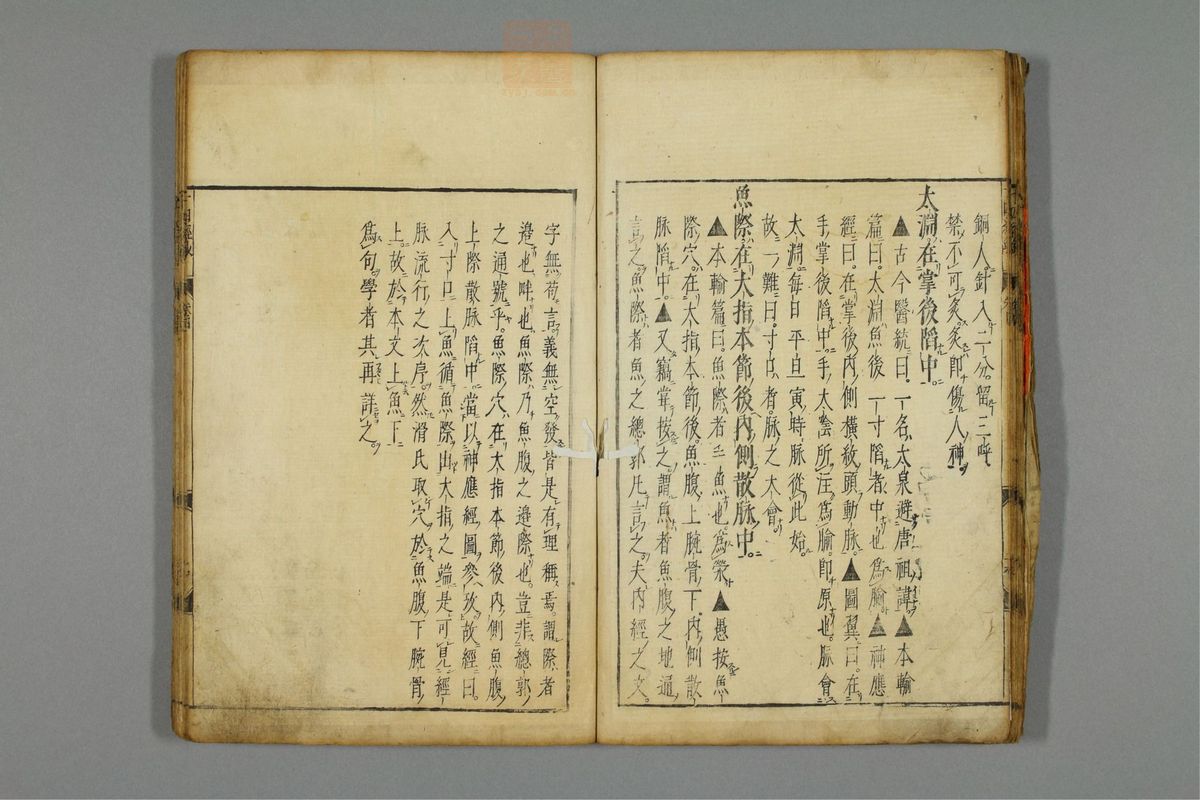 銅人針入二分留三呼
禁不可灸灸即傷人神
太淵在掌後陷中
▲古今醫統曰一名太泉避唐祖諱▲本輸
篇曰太淵魚後一寸陷者中也為腧▲神應
經曰在掌後內側橫紋頭動脉▲圖翼曰在
手掌後陷中手太陰所注為腧即原也脉會
太淵每日平旦寅時脉從此始
故一難曰寸口者脉之大會
魚際在大指本節後內側散脉中
▲本輸篇曰魚際者手魚也為滎▲愚按魚
際穴在大指本節後魚腹上腕骨下內側散
脉陷中▲又竊嘗按之謂魚者魚腹之地通
言之魚際者魚之總郭凡言之夫內經之文
字無苟言義無空發皆是有理稱焉謂際者
邊也畔也魚際乃魚腹之邊際也豈非總郭
之通號乎魚際穴在大指本節後內側魚腹
上際散脉陷中當以神應經圖參攷故經曰
入寸口上魚循魚際出大指之端是可見經
脉流行之次序然滑氏取穴於魚腹下腕骨
上故於本文上魚下
為句學者其再詳之